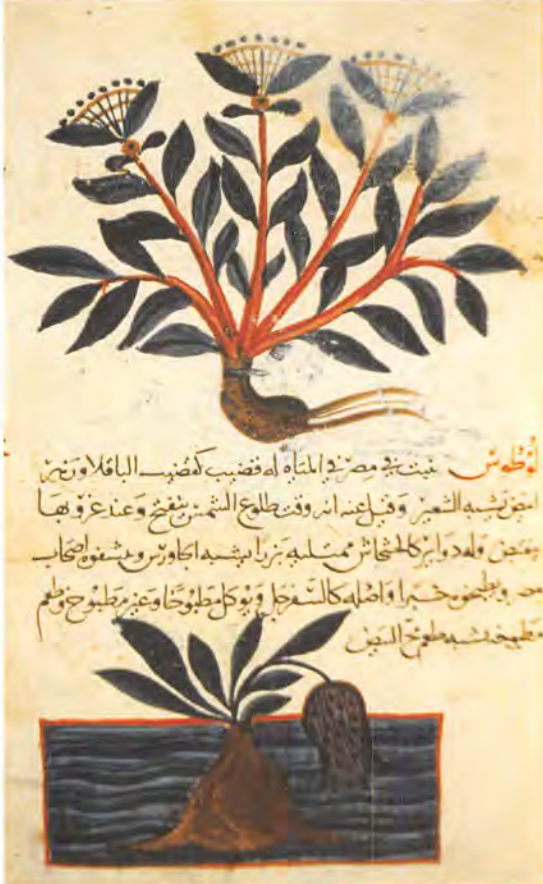 لوطوس ينبت في مصر في المياه له قضيب كقضيب الباقلا وزهر
ابيض يشبه الشعير وقيل عنه انه وقت طلوع الشمس ينفتح وعند غروبها
ينقبض وله دواير كالخشخاش ممتليه بزرا يشبه الجاورس ويشفوه اصحاب
مصر ويطبخوه خبزا واصله كالسفرجل ويوكل مطبوخا وغير مطبوخ وطعم
مطبوخه يشبه طعم البيض